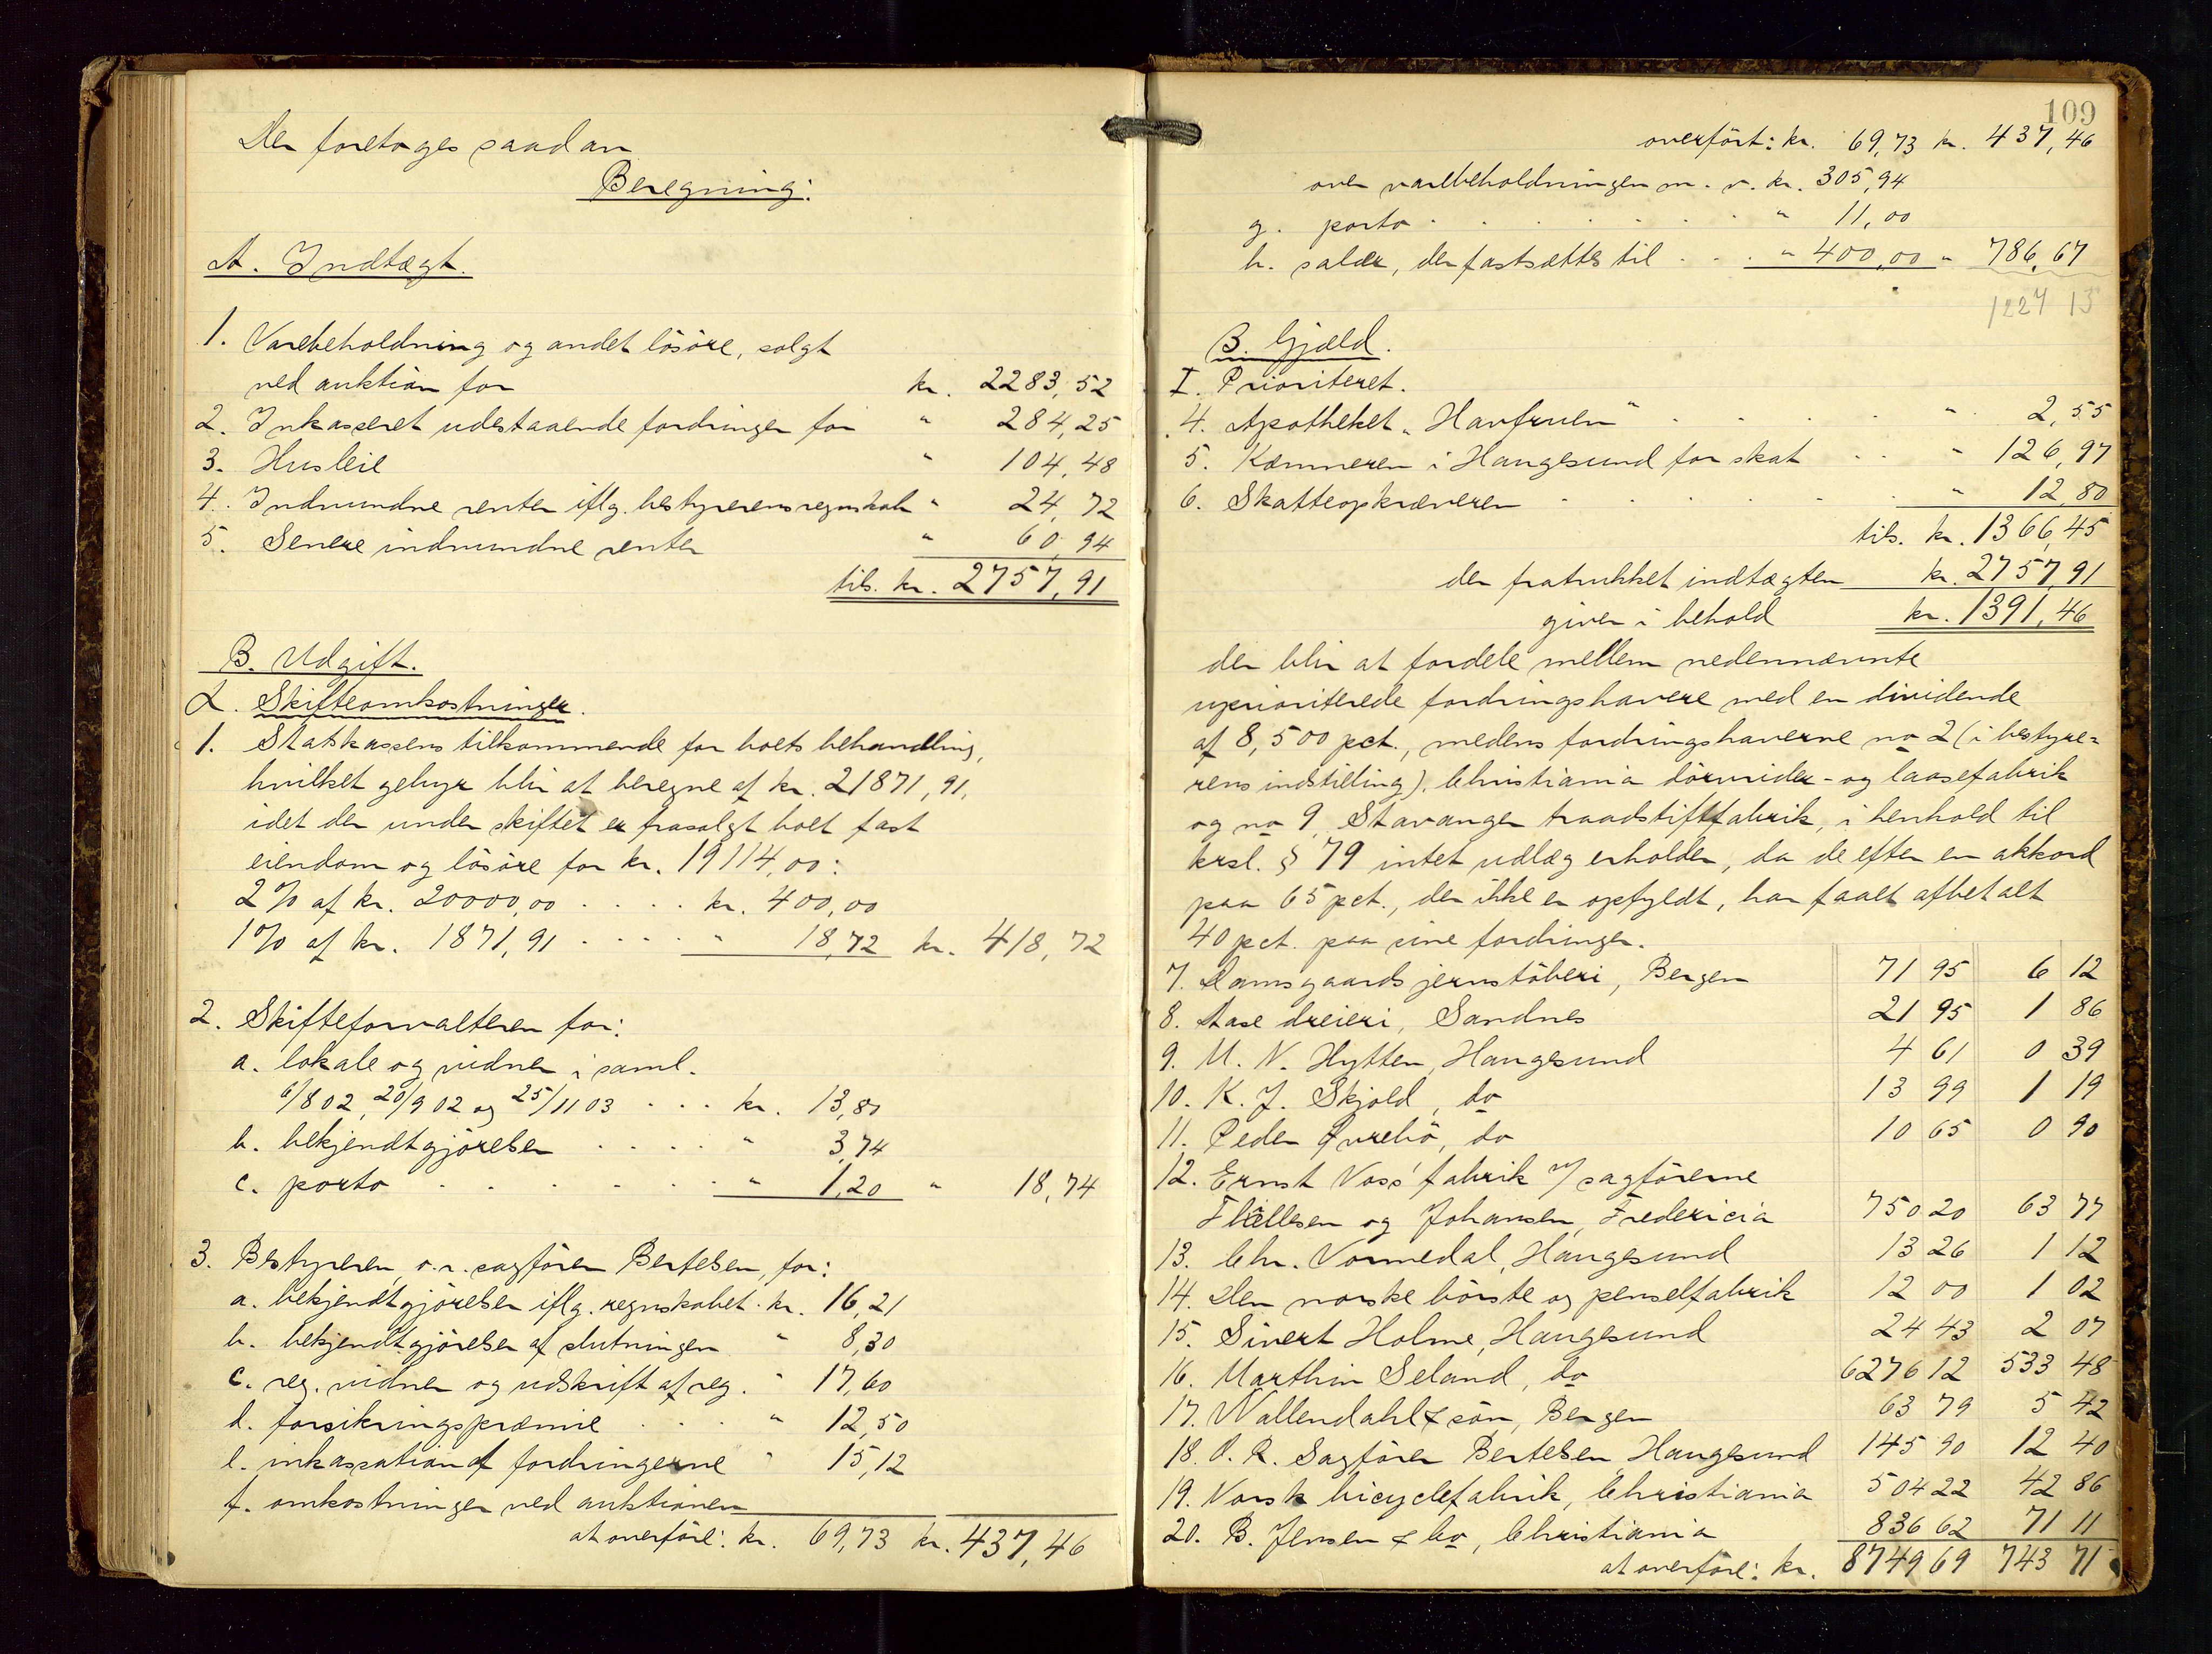 Der foretoges saadan
Beregning:
A. Indtægt.
1. Varebeholdning og andet lösöre, solgt
ved auktion for kr. 2283,52
2. Inkasseret udestaaende fordringer for " 284,25
3. Husleie " 104,48
4. Indvundne renter iflg. bestyrerens regnskab " 24,72
5. Senere indvundne renter " 60,94
tils. kr. 2757,91
B. Udgift.
α. Skifteomkostninger.
1. Statskassens tilkommende for boets behandling,
hvilket gebyr blir at beregne af kr. 21871,91,
idet der under skiftet er frasolgt boet fast
eiendom og lösöre for kr. 19114,00:
2% af kr. 20000,00 .... kr. 400,00
1% af kr. 1871,91 .... " 18,72 kr. 418,72
2. Skifteforvalteren for:
a. lokale og vidner i saml.
6/8 02, 20/9 02 og 25/11 03 ... kr. 13,80
b. bekjendtgjörelser .... " 3,74
c. porto ...... " 1,20 " 18,74
3. Bestyreren, o.r.sagförer Bertelsen, for:
a. bekjendtgjörelser iflg. regnskabet. kr. 16,21
b. bekjendtgjörelser af slutningen " 8,30
c. reg. vidner og udskrift af reg. " 17,60
d. forsikringspræmie ... " 12,50
e. inkassation af fordringerne " 15,12
f. omkostninger ved auktionen
at overföre: kr. 69,73 kr. 437,46
109
overfört: kr. 69,73 kr. 437,46
over varebeholdningen m. v. kr. 305,94
g. porto ....... " 11,00
h. salær, der fastsættes til ... " 400,00 " 786,67
1224 13
B. Gjæld.
I. Prioriteret.
4. Apotheket "Havfruen" .... " 2,55
5. Kæmneren i Haugesund for skat .. " 126,97
6. Skatteopkræveren ..... " 12,80
tils. kr. 1366,45
der fratrukket indtægten kr. 2757,91
giver i behold kr. 1391,46
der blir at fordele mellem nedennævnte
uprioriterede fordringshavere med en dividende
af 8,500 pct., medens fordringshaverne no 2 (i bestyre=
rens indstilling), Christiania dörvrider- og laasefabrik
og no 9, Stavanger traadstiftfabrik, i henhold til
krsl. § 79 intet udlæg erholder, da de efter en akkord
paa 65 pct., der ikke er opfyldt, har faaet afbetalt
40 pct. paa sine fordringer.
7. Damsgaards jernstöberi, Bergen 71 95 6 12
8. Aase dreieri, Sandnes 21 95 1 86
9. M. N. Hytten, Haugesund 4 61 0 39
10. K. J. Skjold, do 13 99 1 19
11. Peder Övrebö, do 10 65 0 90
12. Ernst Voss' fabrik v/ sagförerne
og Johansen, Fredericia 750 20 63 77
13. Chr. Vormedal, Haugesund 13 26 1 12
14. Den norske börste og penselfabrik 12 00 1 02
15. Sivert Holme, Haugesund 24 43 2 07
16. Marthin Seland, do 6276 12 533 48
17. Wallendahl & sön, Bergen 63 79 5 42
18. O. R. Sagförer Bertelsen Haugesund 145 90 12 40
19. Norsk bicyclefabrik, Christiania 504 22 42 86
20. B. Jensen & Co, Christiania 836 62 71 11
at overföre: kr. 8749 69 743 71